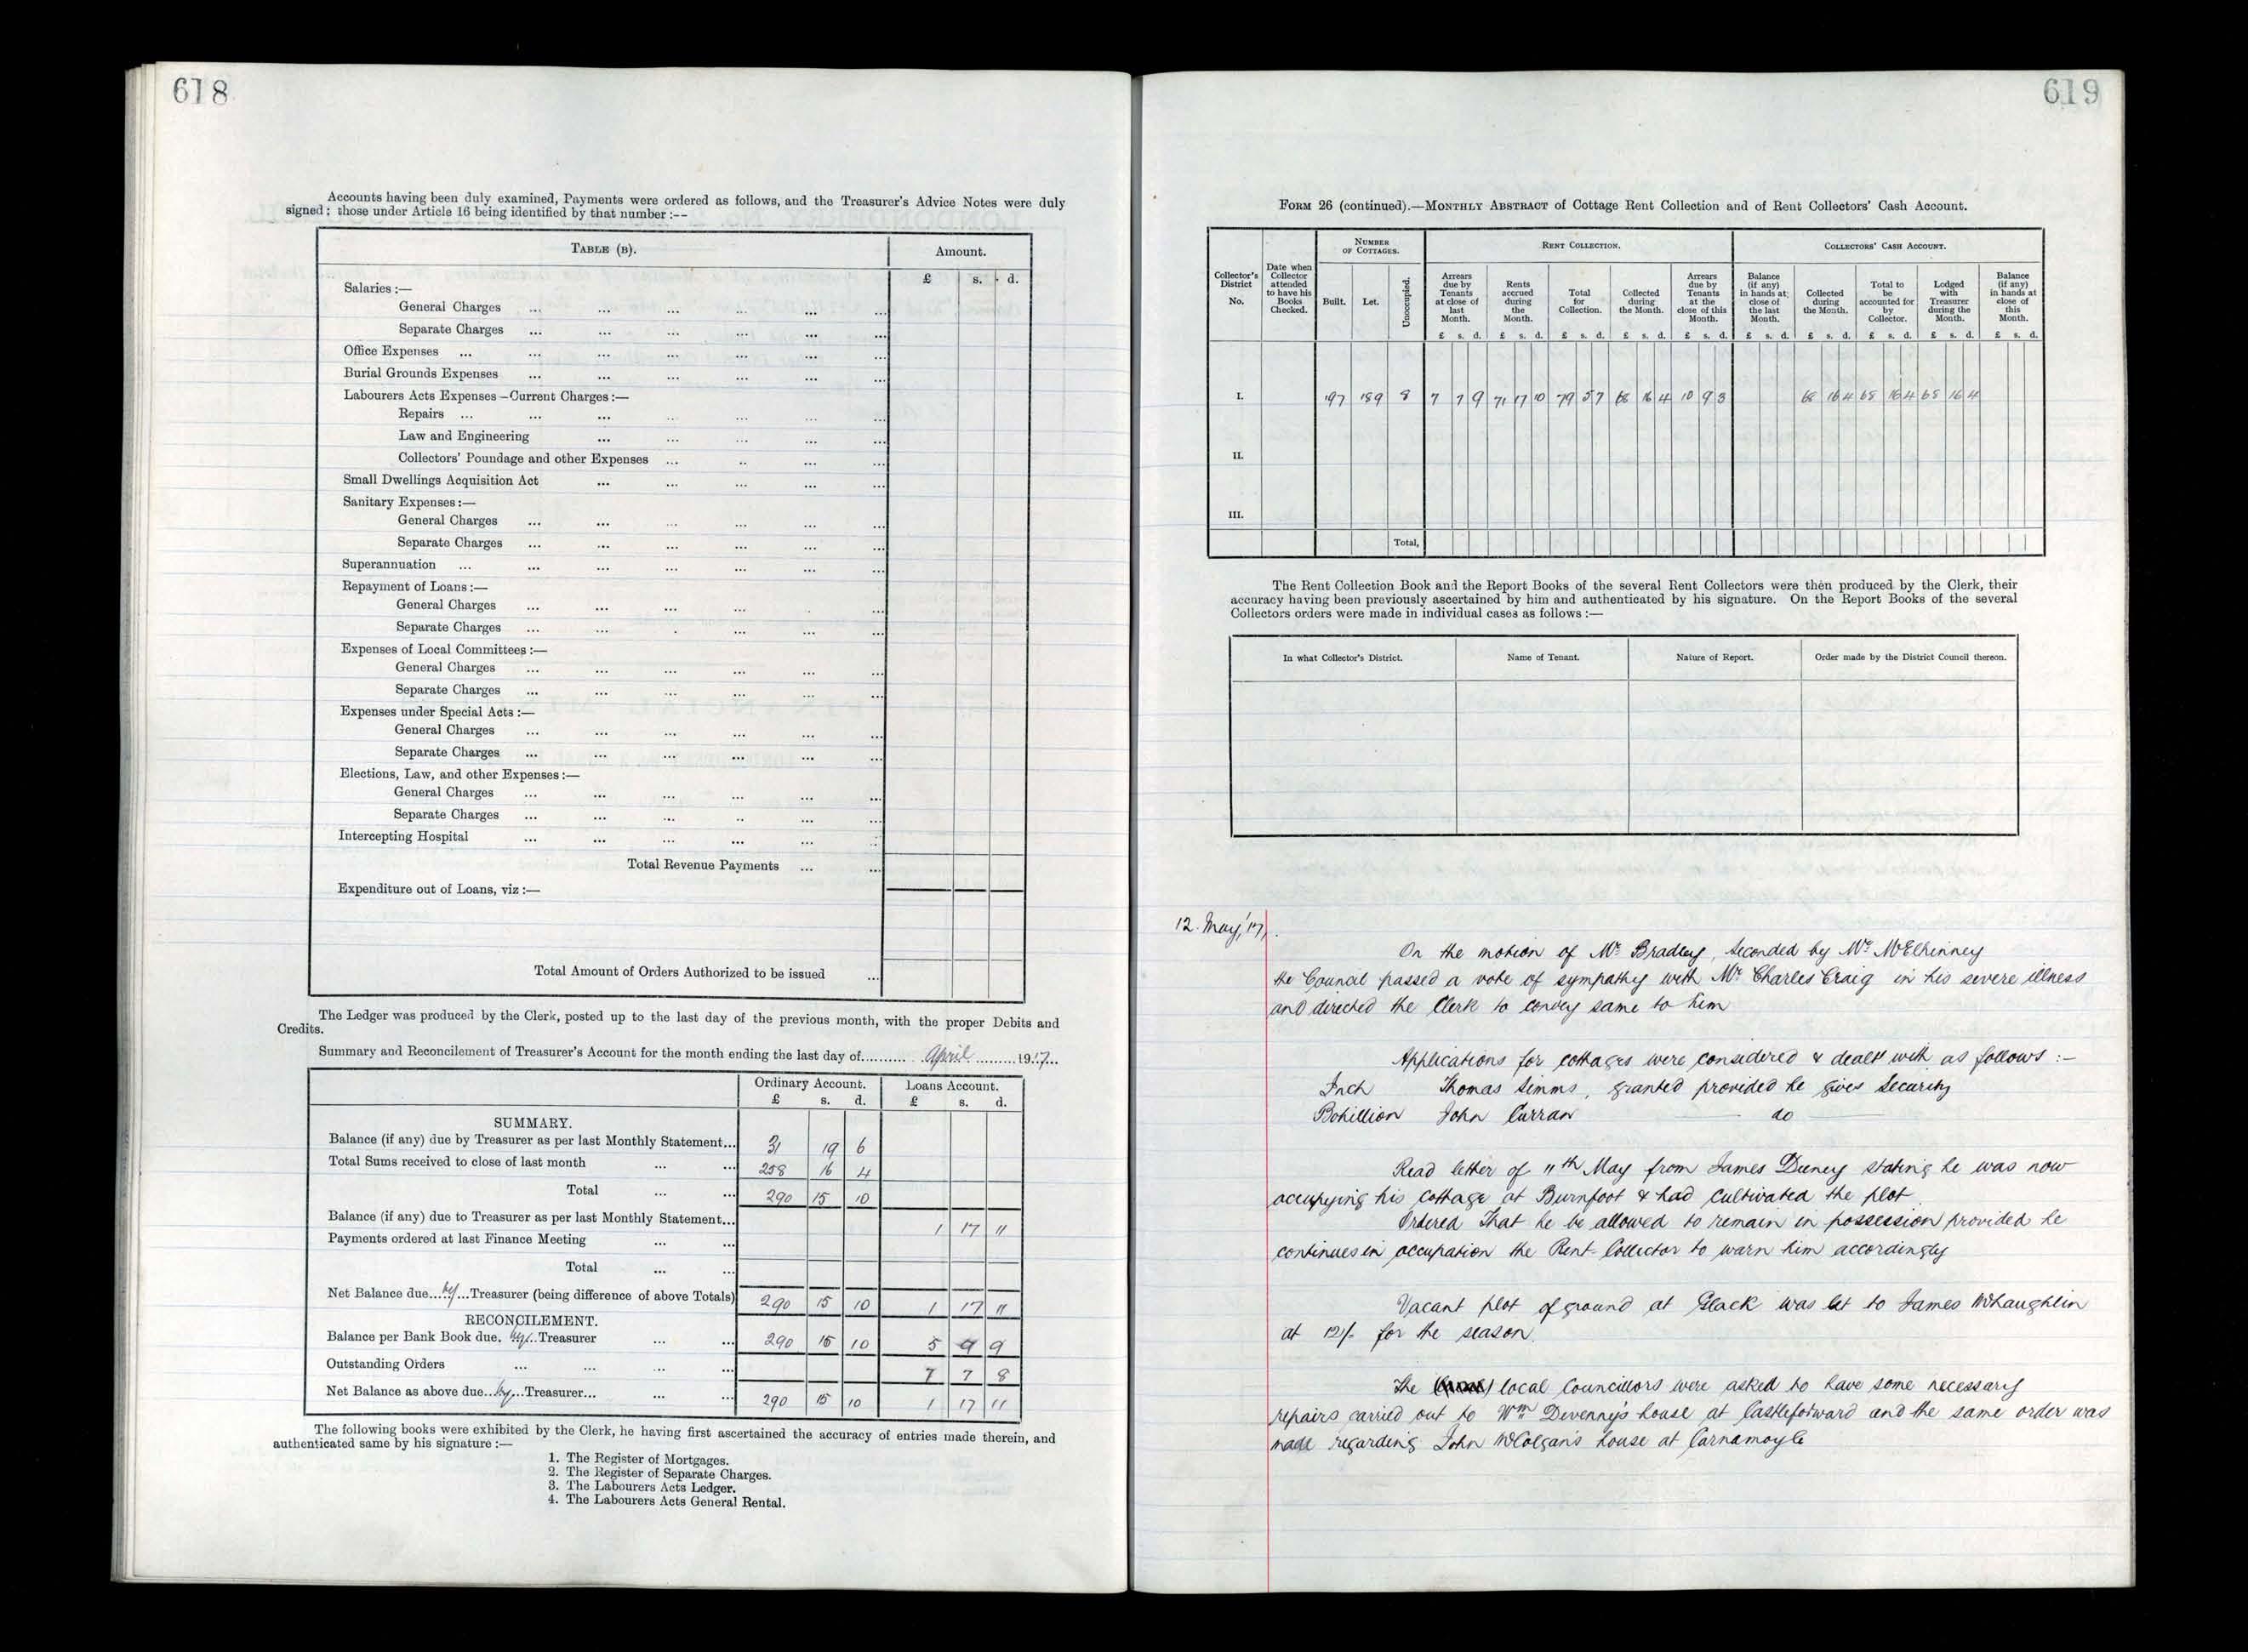 618
Accounts having been duly examined, Payments were ordered as follows, and the Treasurer's Advice Notes were duly
signed; those under Article 16 being identified by that number :--
TABLE (B). Amount.
£ s. d.
Salaries :—
General Charges ... ... ... ... ... ...
Separate Charges ... ... ... ... ... ...
Office Expenses ... ... ... ... ... ...
Burial Grounds Expenses ... ... ... ... ... ...
Labourers Acts Expenses—Current Charges :—
Repairs ... ... ... ... ... ... ...
Law and Engineering ... ... ... ... ...
Collectors' Poundage and other Expenses ... ... ... ...
Small Dwellings Acquisition Act ... ... ... ... ...
Sanitary Expenses :—
General Charges ... ... ... ... ... ...
Separate Charges ... ... ... ... ... ...
Superannuation ... ... ... ... ... ... ...
Repayment of Loans :—
General Charges ... ... ... ... ... ...
Separate Charges ... ... ... ... ... ...
Expenses of Local Committees :—
General Charges ... ... ... ... ... ...
Separate Charges ... ... ... ... ... ...
Expenses under Special Acts :—
General Charges ... ... ... ... ... ...
Separate Charges ... ... ... ... ... ...
Elections, Law, and other Expenses :—
General Charges ... ... ... ... ... ...
Separate Charges ... ... ... ... ... ...
Intercepting Hospital ... ... ... ... ... ...
Total Revenue Payments ... ...
Expenditure out of Loans, viz :—
Total Amount of Orders Authorized to be issued ...
The Ledger was produced by the Clerk, posted up to the last day of the previous month, with the proper Debits and
Credits.
Summary and Reconcilement of Treasurer's Account for the month ending the last day of.......... April .........1917...
Ordinary Account. Loans Account.
£ s. d. £ s. d.
SUMMARY.
Balance (if any) due by Treasurer as per last Monthly Statement... 31 19 6
Total Sums received to close of last month ... ... 258 16 4
Total ... ... 290 15 10
Balance (if any) due to Treasurer as per last Monthly Statement... 1 17 11
Payments ordered at last Finance Meeting ... ...
Total ... ...
Net Balance due....by...Treasurer (being difference of above Totals) 290 15 10 1 17 11
RECONCILEMENT.
Balance per Bank Book due. by..Treasurer ... ... 290 15 10 5 9 9
Outstanding Orders ... ... ... ... 7 7 8
Net Balance as above due...by...Treasurer... ... ... 290 15 10 1 17 11
The following books were exhibited by the Clerk, he having first ascertained the accuracy of entries made therein, and
authenticated same by his signature :—
1. The Register of Mortgages.
2. The Register of Separate Charges.
3. The Labourers Acts Ledger.
4. The Labourers Acts General Rental.
619
FORM 26 (continued).—MONTHLY ABSTRACT of Cottage Rent Collection and of Rent Collectors' Cash Account.
NUMBER OF COTTAGES. RENT COLLECTION. COLLECTORS' CASH ACCOUNT.
Collector's District No. Date when Collector attended to have his Books Checked. Built. Let. Unoccupied. Arrears due by Tenants at close of last Month. Rents accrued during the Month. Total for Collection. Collected during the Month. Arrears due by Tenants at the close of this Month. Balance (if any) in hands at close of the last Month. Collected during the Month. Total to be accounted for by Collector. Lodged with Treasurer during the Month. Balance (if any) in hands at close of this Month.
£ s. d. £ s. d. £ s. d. £ s. d. £ s. d. £ s. d. £ s. d. £ s. d. £ s. d. £ s. d.
I. 197 189 8 7 7 9 71 17 10 79 5 7 68 16 4 10 9 3 68 16 4 68 16 4 68 16 4
II.
III.
Total,
The Rent Collection Book and the Report Books of the several Rent Collectors were then produced by the Clerk, their
accuracy having been previously ascertained by him and authenticated by his signature. On the Report Books of the several
Collectors orders were made in individual cases as follows :—
In what Collector's District. Name of Tenant. Nature of Report. Order made by the District Council thereon.
12. May, '17,.
On the motion of Mr Bradley, Seconded by Mr McElhinney
the Council passed a vote of sympathy with Mr Charles Craig in his severe illness
and directed the Clerk to convey same to him
Applications for cottages were considered & dealt with as follows :—
Inch Thomas Simms, granted provided he gives Security
Bohillion John Curran — do —
Read letter of 11th May from James Deeney stating he was now
occupying his cottage at Burnfoot & had cultivated the plot.
Ordered That he be allowed to remain in possession provided he
continues in occupation the Rent Collector to warn him accordingly
Vacant plot of ground at Glack was let to James McLaughlin
at 12/- for the season.
The local Councillors were asked to have some necessary
repairs carried out to Wm Devenny's house at Castleforward and the same order was
made regarding John McColgan's house at Carnamoyle